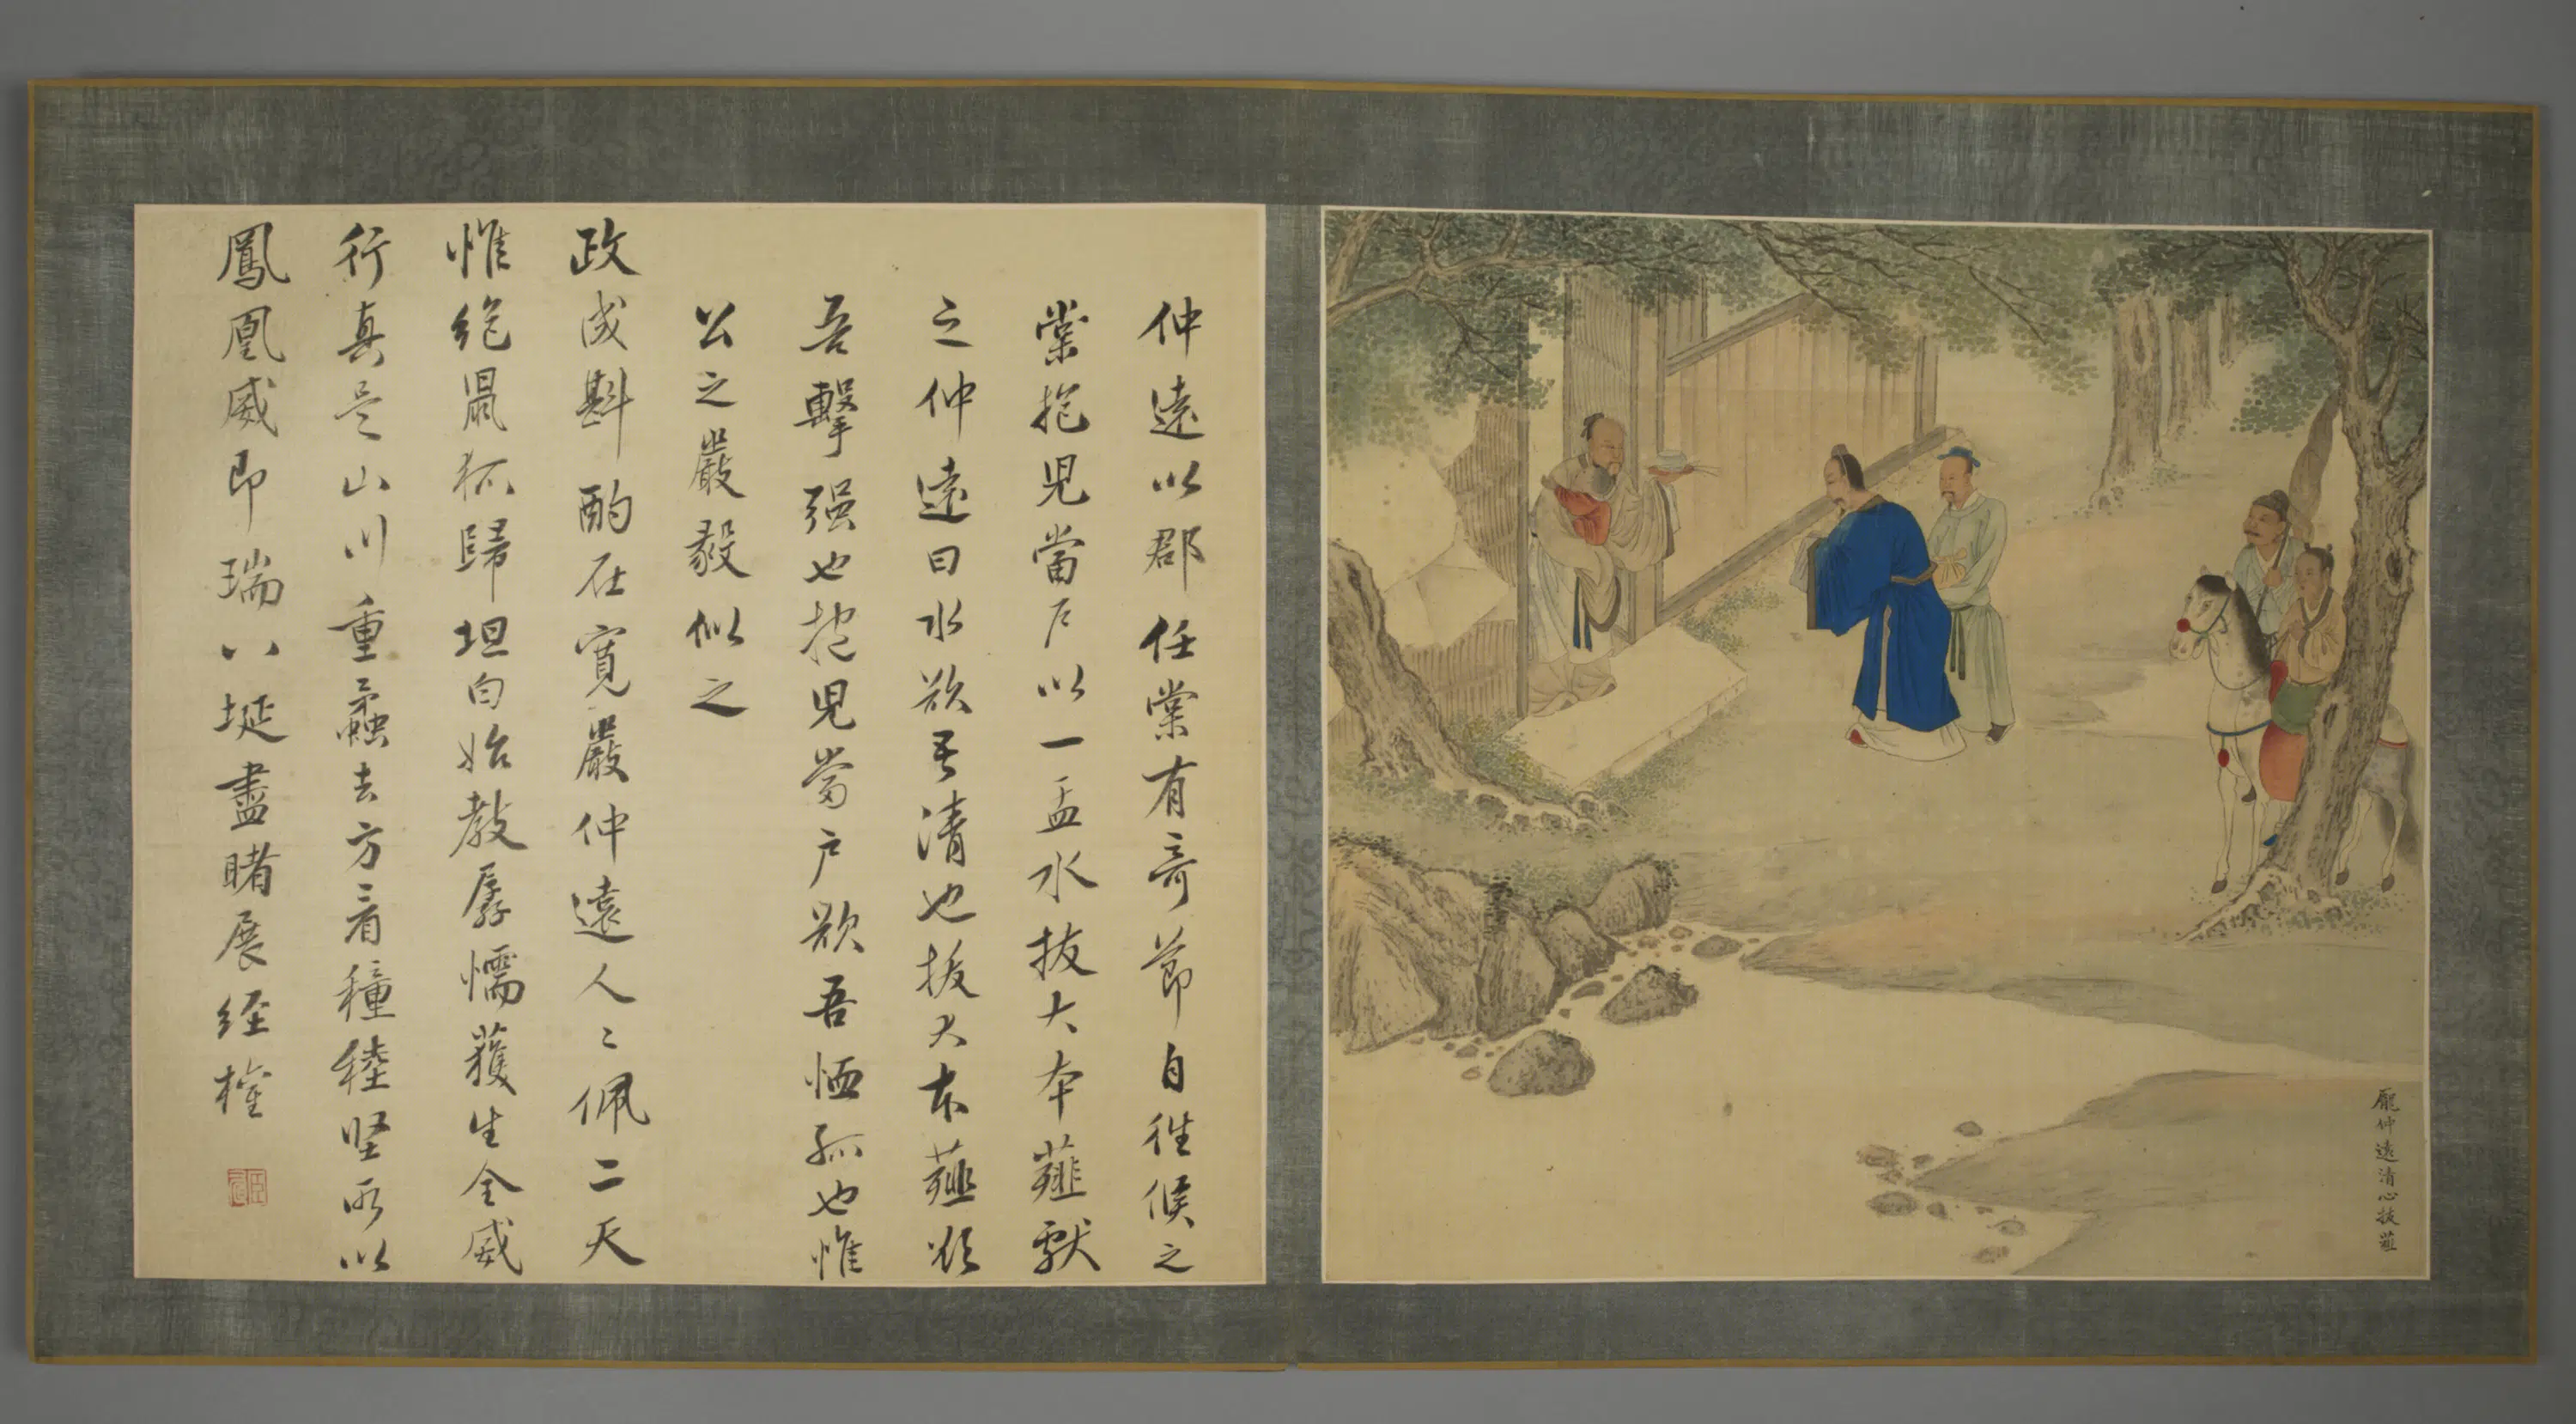 龐仲遠清心拔薤
仲遠以郡任棠有奇節自往候之
棠抱児當戶以一盂水拔大本薤獻
之仲遠曰水欲吾清也拔大本薤欲
吾擊强也抱児當戶欲吾恤孤也惟
公之嚴毅似之
政成斟酌在寛嚴仲遠人〻佩二天
惟絶鼠狐歸坦白始教孱懦獲生全威
行真是山川重蠹去方看穜稑坚所以
鳳凰威即瑞八埏盡睹展經權